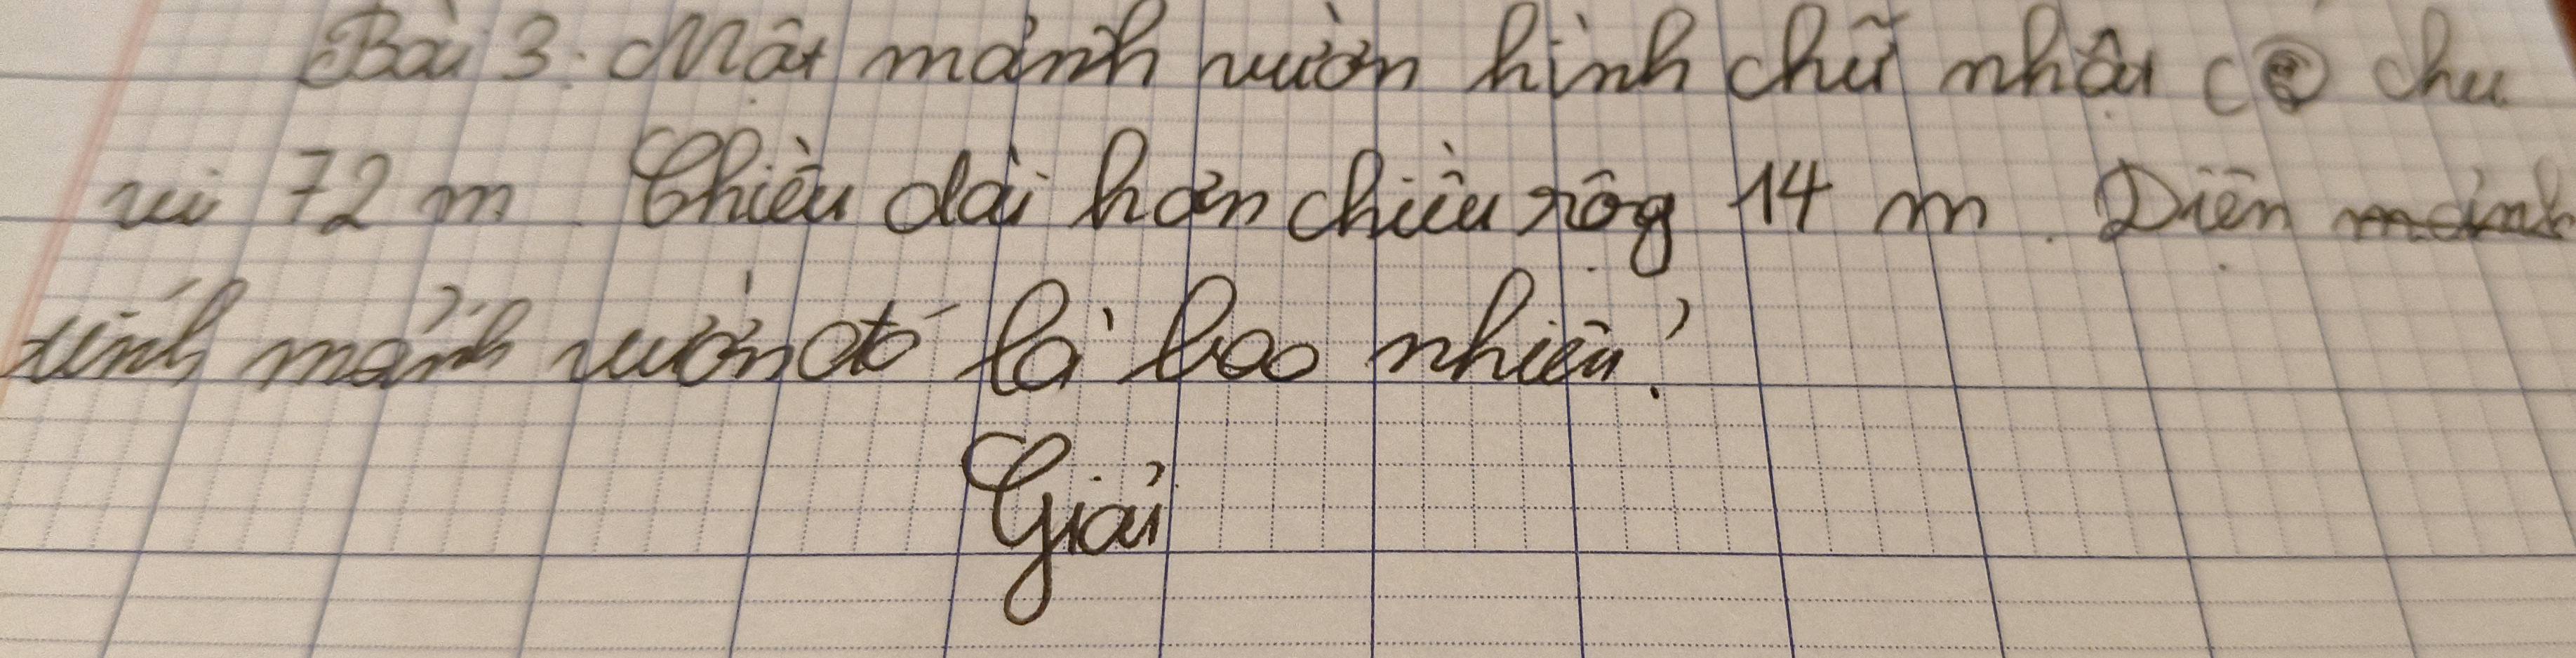 Bài 3: Một mảnh vườn hình chữ nhật có chu
vi 72 m. Chiều dài hơn chiều rộg 14 m. Diện
tính mảnh vườn đó là bao nhiêu?
Giải